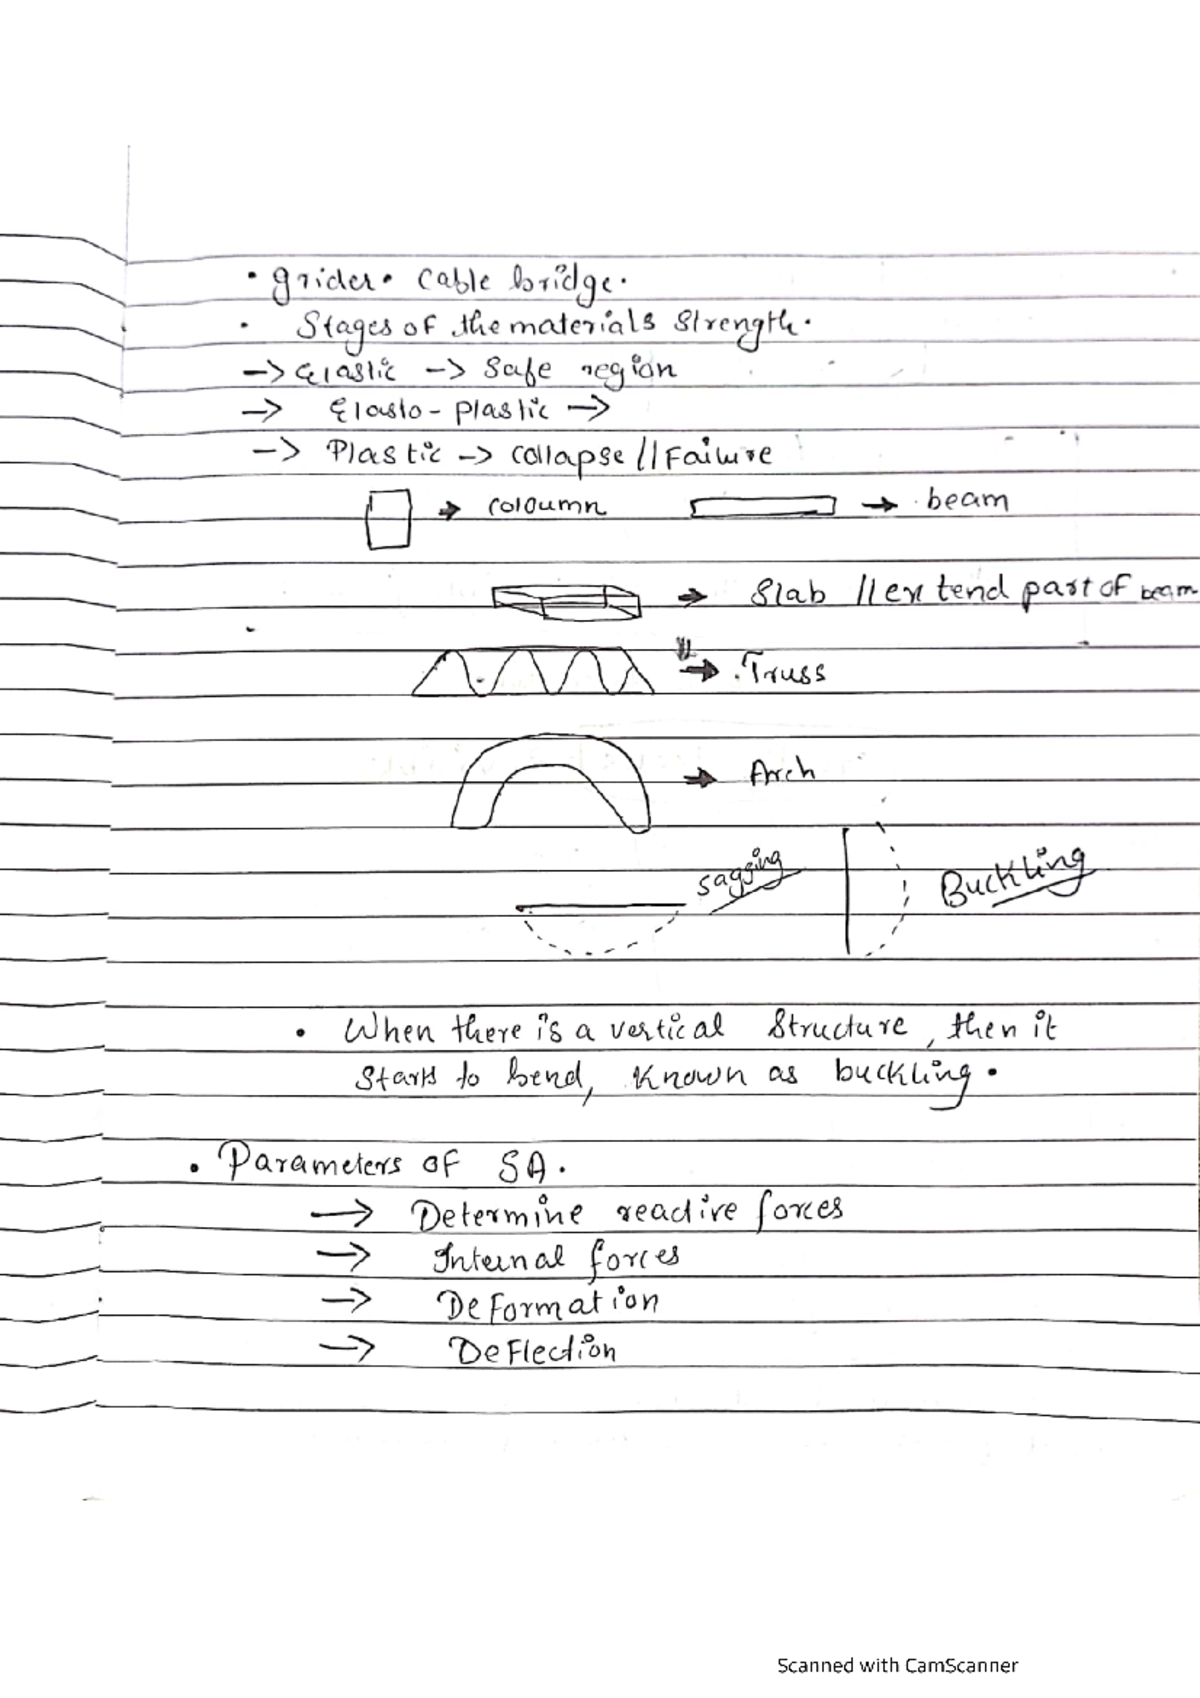 • grider • Cable bridge.
• Stages of the materials Strength.
-> Elastic -> Safe region
-> Elasto - plastic ->
-> Plastic -> collapse // Failure
-> coloumn -> beam
-> Slab // extend part of beam
-> Truss
-> Arch
sagging Buckling
• When there is a vertical Structure, then it
starts to bend, Known as buckling.
• Parameters of SA.
-> Determine reactive forces
-> Internal forces
-> Deformation
-> Deflection
Scanned with CamScanner